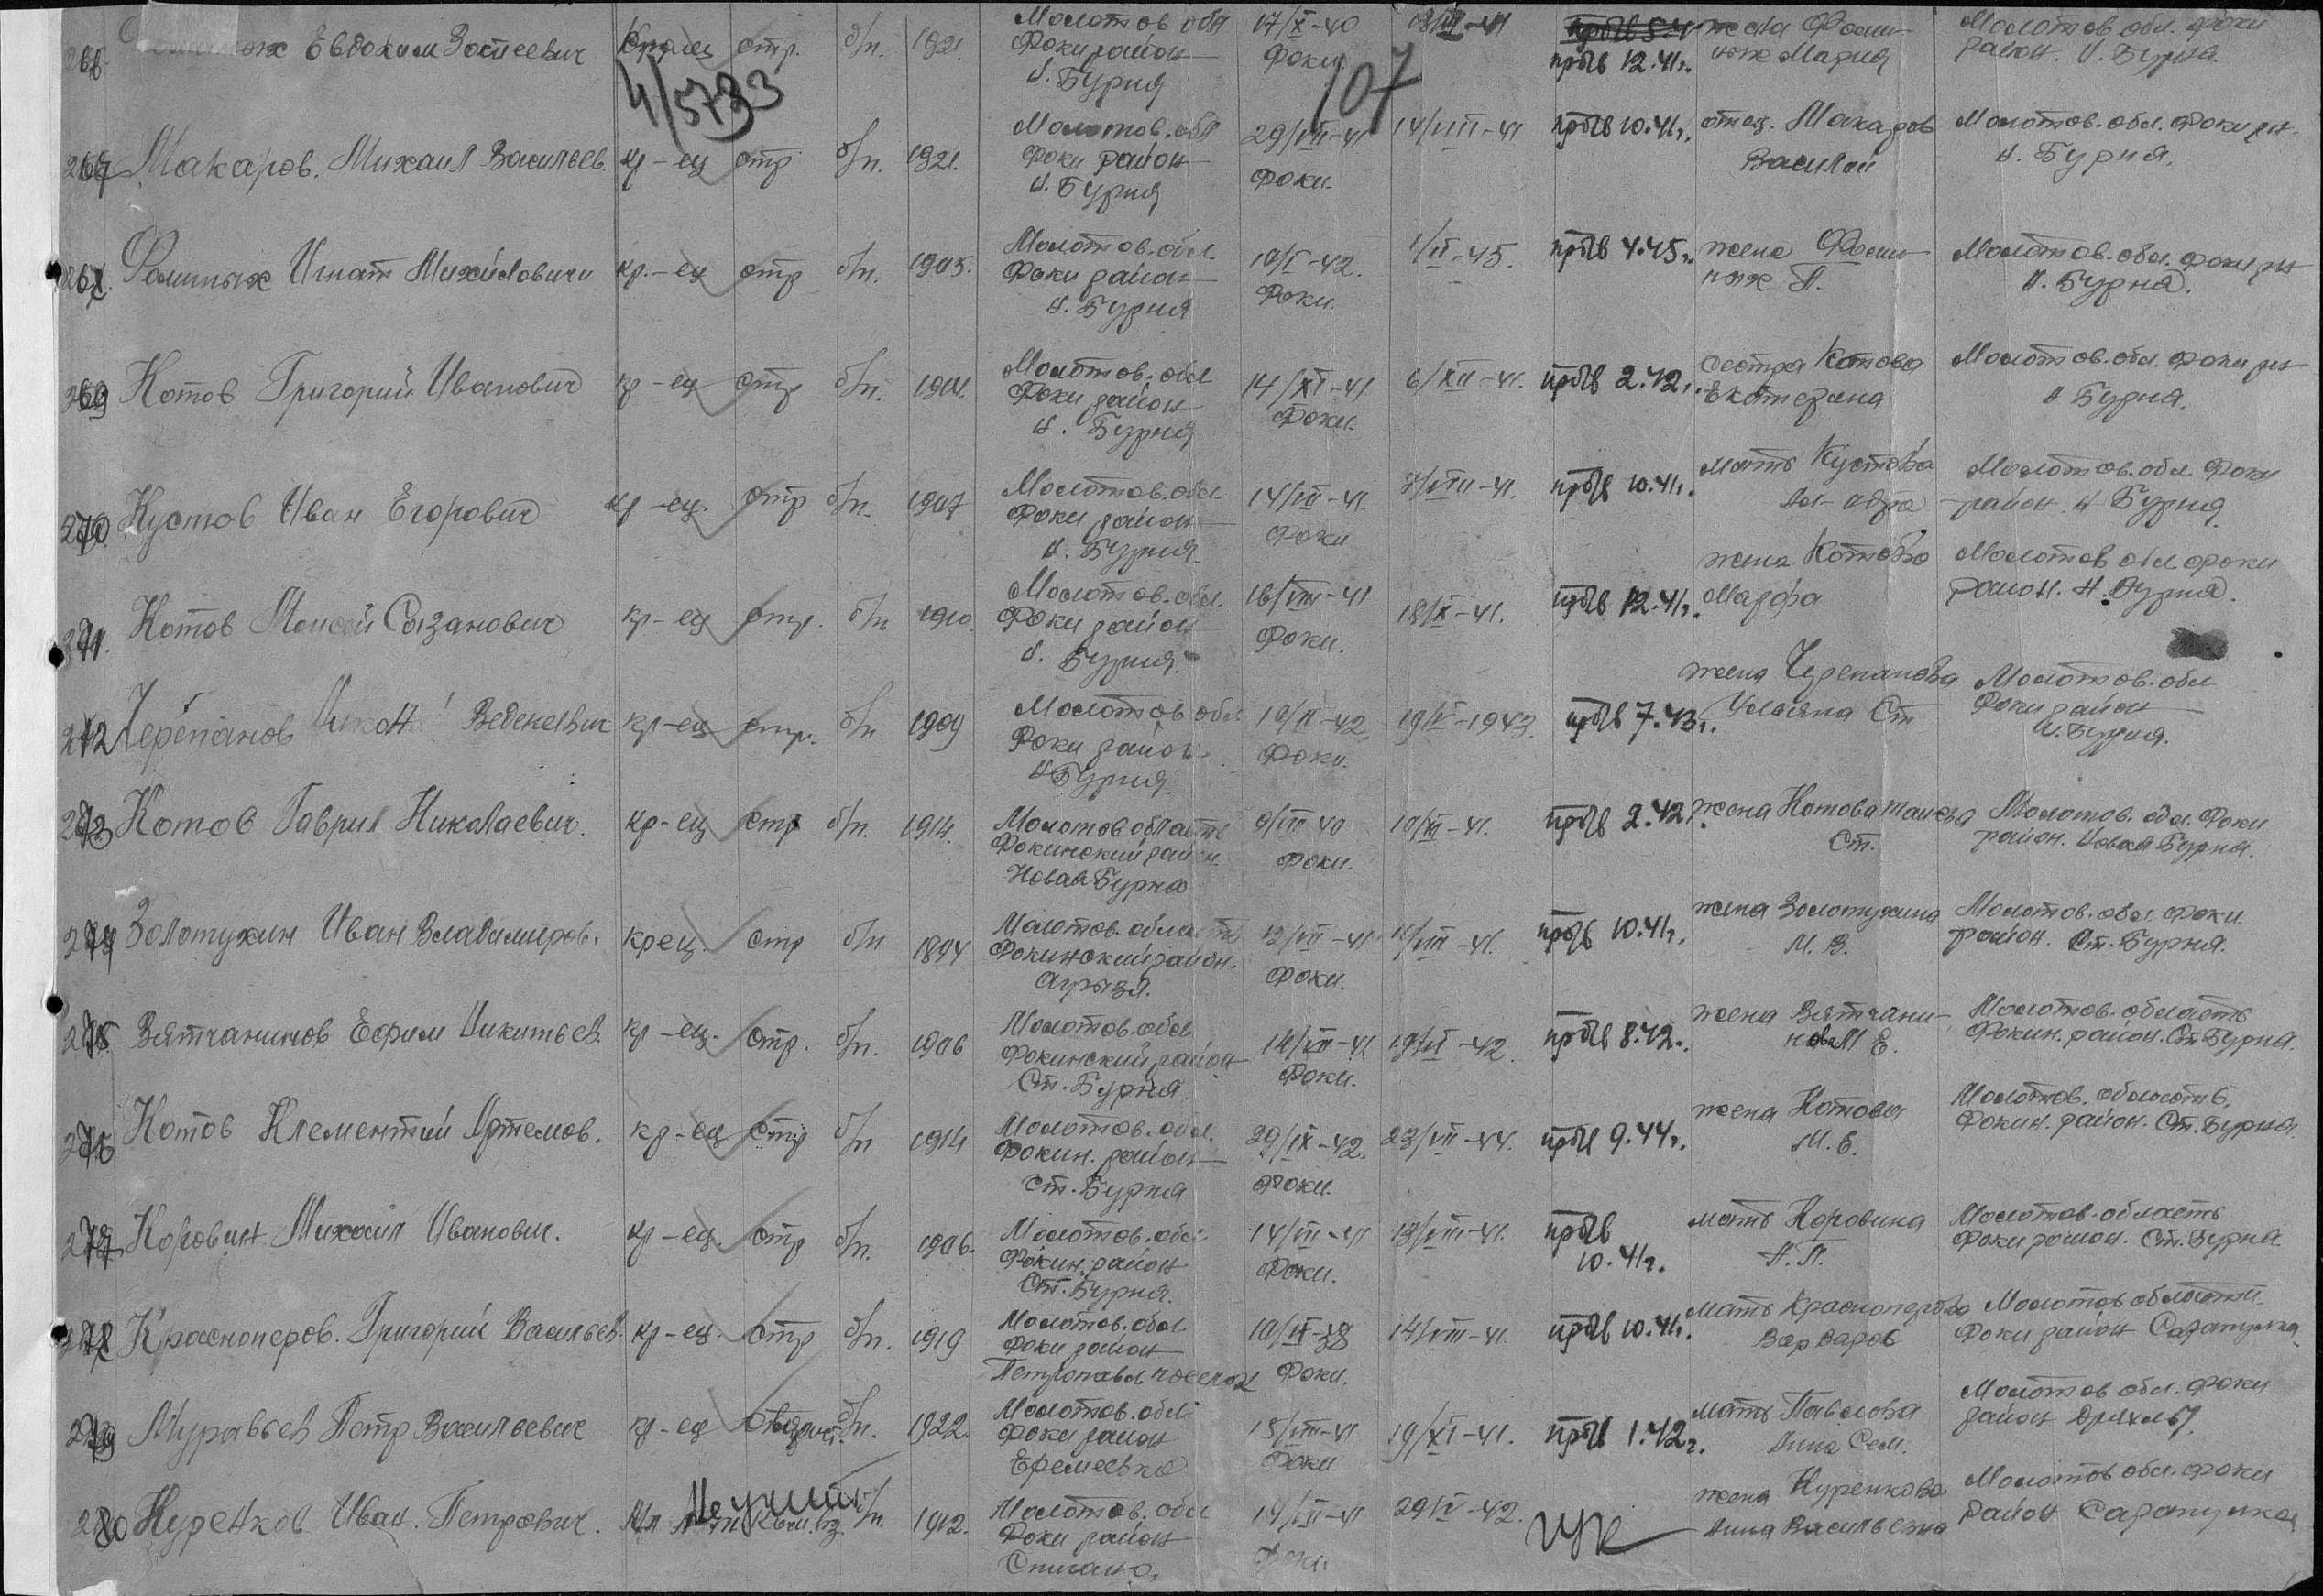 Евдоким Зотеевич стр. б/п. 1921. Молотов обл 17/X-40 жена Фоми- Молотов. обл. Фоки
Фоки район Фоки приб 12.41г. ных Мария район. Н. Бурня.
Н. Бурня
4/5733
107
267 Макаров. Михаил Васильев. кр-ец стр б/п. 1921. Молотов. обл 29/VII-41 14/VIII-41 10.41г. отец. Макаров Молотов. обл. Фоки рн.
Фоки район Фоки. Василий Н. Бурня.
Н. Бурня
268. Фоминых Игнат Михайлович кр.-ец стр б/п. 1905. Молотов. обл 10/I-42. 1/II-45. 4.45г. жена Фоми- Молотов. обл. Фоки рн
Фоки район Фоки. ных П. Н. Бурня.
Н. Бурня
269 Котов Григорий Иванович кр-ец стр б/п. 1901. Молотов. обл 14/XI-41 6/XII-41. 2.42г. сестра Котова Молотов. обл. Фоки рн
Фоки район Фоки. Екатерина Н Бурня.
Н. Бурня
270. Кустов Иван Егорович кр-ец. стр б/п. 1907 Молотов. обл 14/VII-41. 8/VIII-41. 10.41г. мать Кустова Молотов. обл Фоки
Фоки район Фоки Ал-дра район. Н Бурня
Н. Бурня.
271. Котов Моисей Созанович кр-ец стр. б/п 1910. Молотов. обл. 16/VIII-41 18/X-41. 12.41г. жена Котова Молотов обл Фоки
Фоки район Фоки. Марфа район. Н. Бурня.
Н. Бурня.
272 Черепанов Никон Веденеевич кр-ец стр. б/п 1909 Молотов обл 10/II-42. 19/V-1943. 7.43г. жена Черепанова Молотов. обл
Фоки район Фоки. Ульяна Ст Фоки район
Н Бурня. Н. Бурня.
273 Котов Гаврил Николаевич. кр-ец стр б/п. 1914. Молотов область 9/VII 40 10/XI-41. 2.42г. жена Котова Таисья Молотов. обл. Фоки
Фокинский район. Фоки. Ст. район. Новая Бурня.
Новая Бурня
274 Золотухин Иван Владимиров. крец. стр б/п 1894 Молотов. область 13/VII-41 11/VIII-41. 10.41г. жена Золотухина Молотов. обл. Фоки
Фокинский район. Фоки. М. В. район. Ст. Бурня.
Агрызя.
275. Вятчанинов Ефим Никитьев. кр-ец. стр. б/п. 1906 Молотов. обл 14/VII-41 19/VI-42. 8.42г. жена Вятчани- Молотов. область
Фокинский район Фоки. нова М Е. Фокин. район. Ст Бурня.
Ст. Бурня
276 Котов Клементий Артемов. кр-ец стр б/п 1914 Молотов. обл. 29/IX-42. 23/VII-44. 9.44г. жена Котова Молотов. область.
Фокин. район Фоки. М. Е. Фокин. район. Ст. Бурня.
Ст. Бурня
277 Коровин Михаил Иванович. кр-ец. стр б/п. 1906. Молотов. обл 14/VII-41 13/VIII-41. мать Коровина Молотов. область
Фокин. район Фоки. 10.41г. А. П. Фоки район. Ст. Бурня.
Ст. Бурня.
278 Красноперов. Григорий Васильев. кр-ец. стр б/п. 1919 Молотов. обл 10/IX-38 14/VIII-41. 10.41г. мать Красноперова Молотов области.
Фоки район Фоки. Варвара Фоки район Сарапулка
Петропавл поселок
279 Муравьев Петр Васильевич кр-ец связист. б/п. 1922. Молотов. обл 15/VIII-41 19/XI-41. 1.42г. мать Павлова Молотов обл. Фоки
Фоки район Фоки. Анна Сем. район
Еремеевка
280 Куренков Иван. Петрович. б/п. 1912. Молотов. обл 14/VII-41 29/V-42. жена Куренкова Молотов обл. Фоки
Фоки район Фоки. Анна Васильевна район Сарапулка